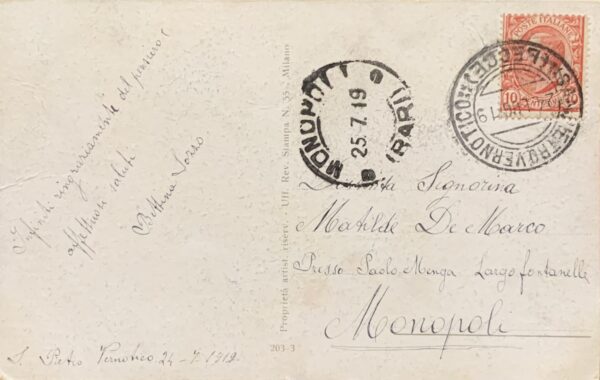 Infiniti ringraziamente del pensiero!
affettuosi saluti
Bettina Sorso
S. Pietro Vernotico 24-7-1919
Proprietà artist. riserv. - Uff. Rev. Stampa N. 55 - Milano
203-3
MONOPOLI (BARI)
25.7.19
S. PIETRO VERNOTICO (LECCE)
POSTE ITALIANE
10
Signorina
Matilde De Marco
Presso Paolo Menga Largo fontanelle
Monopoli